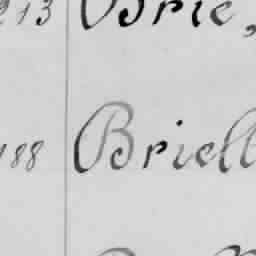 213 Brie,
188 Briell